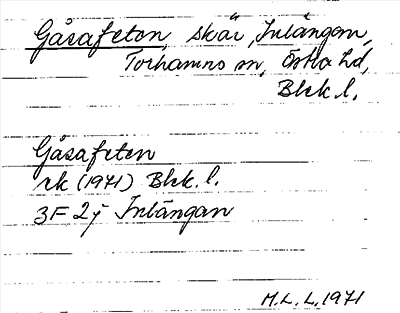 Gåsafeten, skär, Inlängan,
Torhamns sn, Östra hd,
Blek. l.
Gåsafeten
rk (1971) Blek. l.
3F 2j Inlängan
M. L. L. 1971